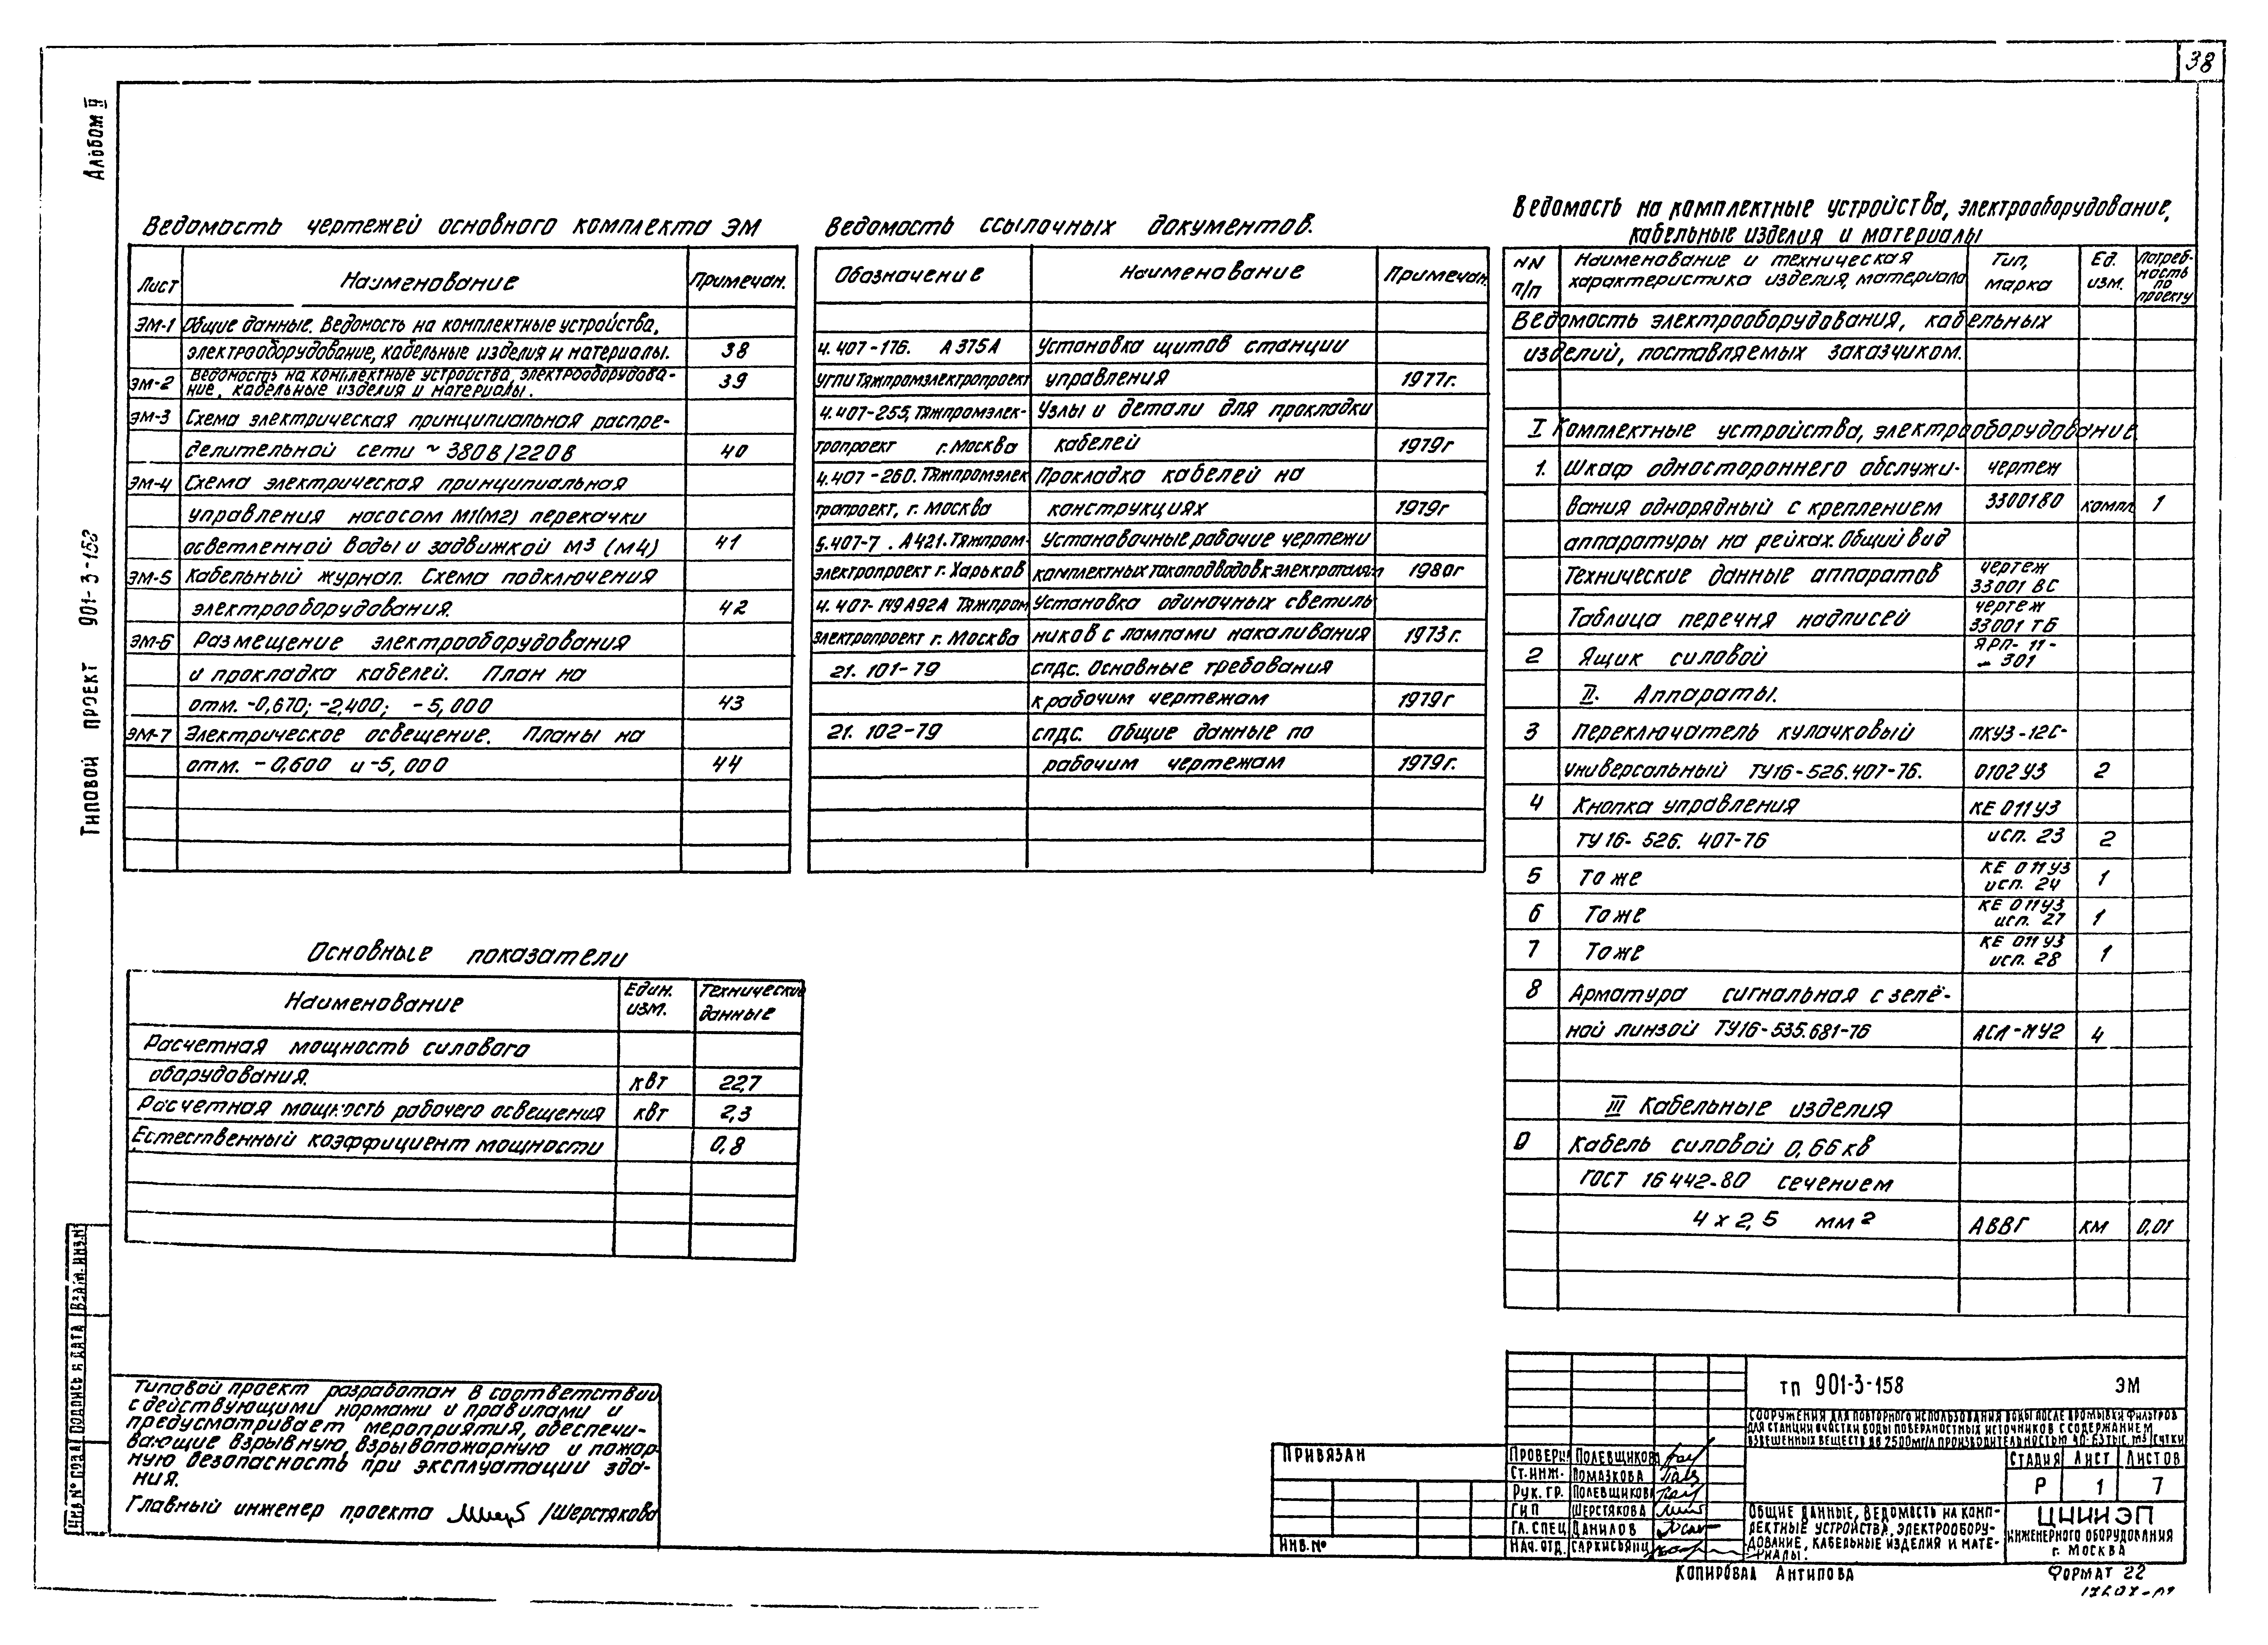 38
Альбом II
Типовой проект 901-3-158
Ведомость чертежей основного комплекта ЭМ
Лист Наименование Примечан.
ЭМ-1 Общие данные. Ведомость на комплектные устройства,
электрооборудование, кабельные изделия и материалы. 38
ЭМ-2 Ведомость на комплектные устройства, электрооборудова-
ние, кабельные изделия и материалы. 39
ЭМ-3 Схема электрическая принципиальная распре-
делительной сети ~ 380В/220В 40
ЭМ-4 Схема электрическая принципиальная
управления насосом М1(М2) перекачки
осветленной воды и задвижкой М3 (М4) 41
ЭМ-5 Кабельный журнал. Схема подключения
электрооборудования. 42
ЭМ-6 Размещение электрооборудования
и прокладка кабелей. План на
отм. -0,670; -2,400; -5,000 43
ЭМ-7 Электрическое освещение. Планы на
отм. -0,600 и -5,000 44
Ведомость ссылочных документов.
Обозначение Наименование Примечан.
4.407-176. А375А Установка щитов станции
УГПИ Тяжпромэлектропроект управления 1977г.
4.407-255, Тяжпромэлек- Узлы и детали для прокладки
тропроект г. Москва кабелей 1979г
4.407-260. Тяжпромэлек Прокладка кабелей на
тропроект, г. Москва конструкциях 1979г
5.407-7. А421. Тяжпром- Установочные рабочие чертежи
электропроект г. Харьков комплектных токоподводов к электроталям 1980г
4.407-149 А92А Тяжпром Установка одиночных светиль
электропроект г. Москва ников с лампами накаливания 1973г.
21. 101-79 СПДС. Основные требования
к рабочим чертежам 1979г
21. 102-79 СПДС. Общие данные по
рабочим чертежам 1979г.
Ведомость на комплектные устройства, электрооборудование,
кабельные изделия и материалы
NN п/п Наименование и техническая характеристика изделия, материала Тип, марка Ед. изм. Потреб-ность по проекту
Ведомость электрооборудования, кабельных
изделий, поставляемых заказчиком.
I Комплектные устройства, электрооборудование
1. Шкаф одностороннего обслужи- чертеж
вания однорядный с креплением 3300180 компл 1
аппаратуры на рейках. Общий вид
Технические данные аппаратов чертеж 33001 ВС
Таблица перечня надписей чертеж 33001 ТБ
2 Ящик силовой ЯРП-11-
- 301
II. Аппараты.
3 Переключатель кулачковый ПКУ3-12С-
универсальный ТУ16-526.407-76. 0102У3 2
4 Кнопка управления КЕ 011У3
ТУ16-526. 407-76 исп. 23 2
5 То же КЕ 011У3 исп. 24 1
6 То же КЕ 011У3 исп. 27 1
7 То же КЕ 011У3 исп. 28 1
8 Арматура сигнальная с зелё-
ной линзой ТУ16-535.681-76 АСЛ-НУ2 4
III Кабельные изделия
Кабель силовой 0,66кв
ГОСТ 16442-80 сечением
4х2,5 мм2 АВВГ км 0,01
Основные показатели
Наименование Един. изм. Технические данные
Расчетная мощность силового
оборудования. квт 22,7
Расчетная мощность рабочего освещения квт 2,3
Естественный коэффициент мощности 0,8
Типовой проект разработан в соответствии
с действующими нормами и правилами и
предусматривает мероприятия, обеспечи-
вающие взрывную, взрывопожарную и пожар-
ную безопасность при эксплуатации зда-
ния.
Главный инженер проекта /Шерстякова
Инв.№ подл. Подпись и дата Взам. инв.№
Привязан
Инв.№
Провери Полевщикова
Ст.инж. Помазкова
Рук. гр. Полевщикова
ГИП Шерстякова
Гл. спец Данилов
Нач. отд. Саркисьянц
ТП 901-3-158 ЭМ
Сооружения для повторного использования воды после промывки фильтров
для станции очистки воды поверхностных источников с содержанием
взвешенных веществ до 2500мг/л производительностью 40-63 тыс. м3/сутки
Стадия Лист Листов
Р 1 7
Общие данные, ведомость на комп-
лектные устройства, электрообору-
дование, кабельные изделия и мате-
риалы.
ЦНИИЭП
инженерного оборудования
г. Москва
Копировал Антипова
Формат 22